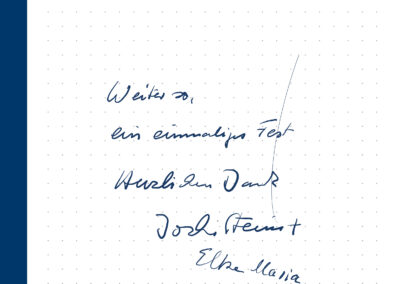 Weiter so,
ein einmaliges Fest
Herzlichen Dank
Elke Maria